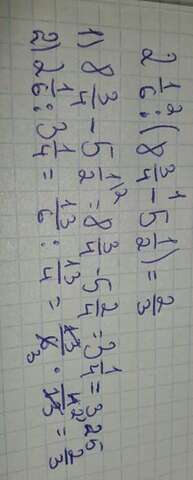 2 1/6 : (8 3/4 - 5 1/2) = 2/3
1) 8 3/4 - 5 1/2 = 8 3/4 - 5 2/4 = 3 1/4 = 3 25
2) 2 1/6 : 3 1/4 = 13/6 : 13/4 = 13/6 · 4/13 = 2/3